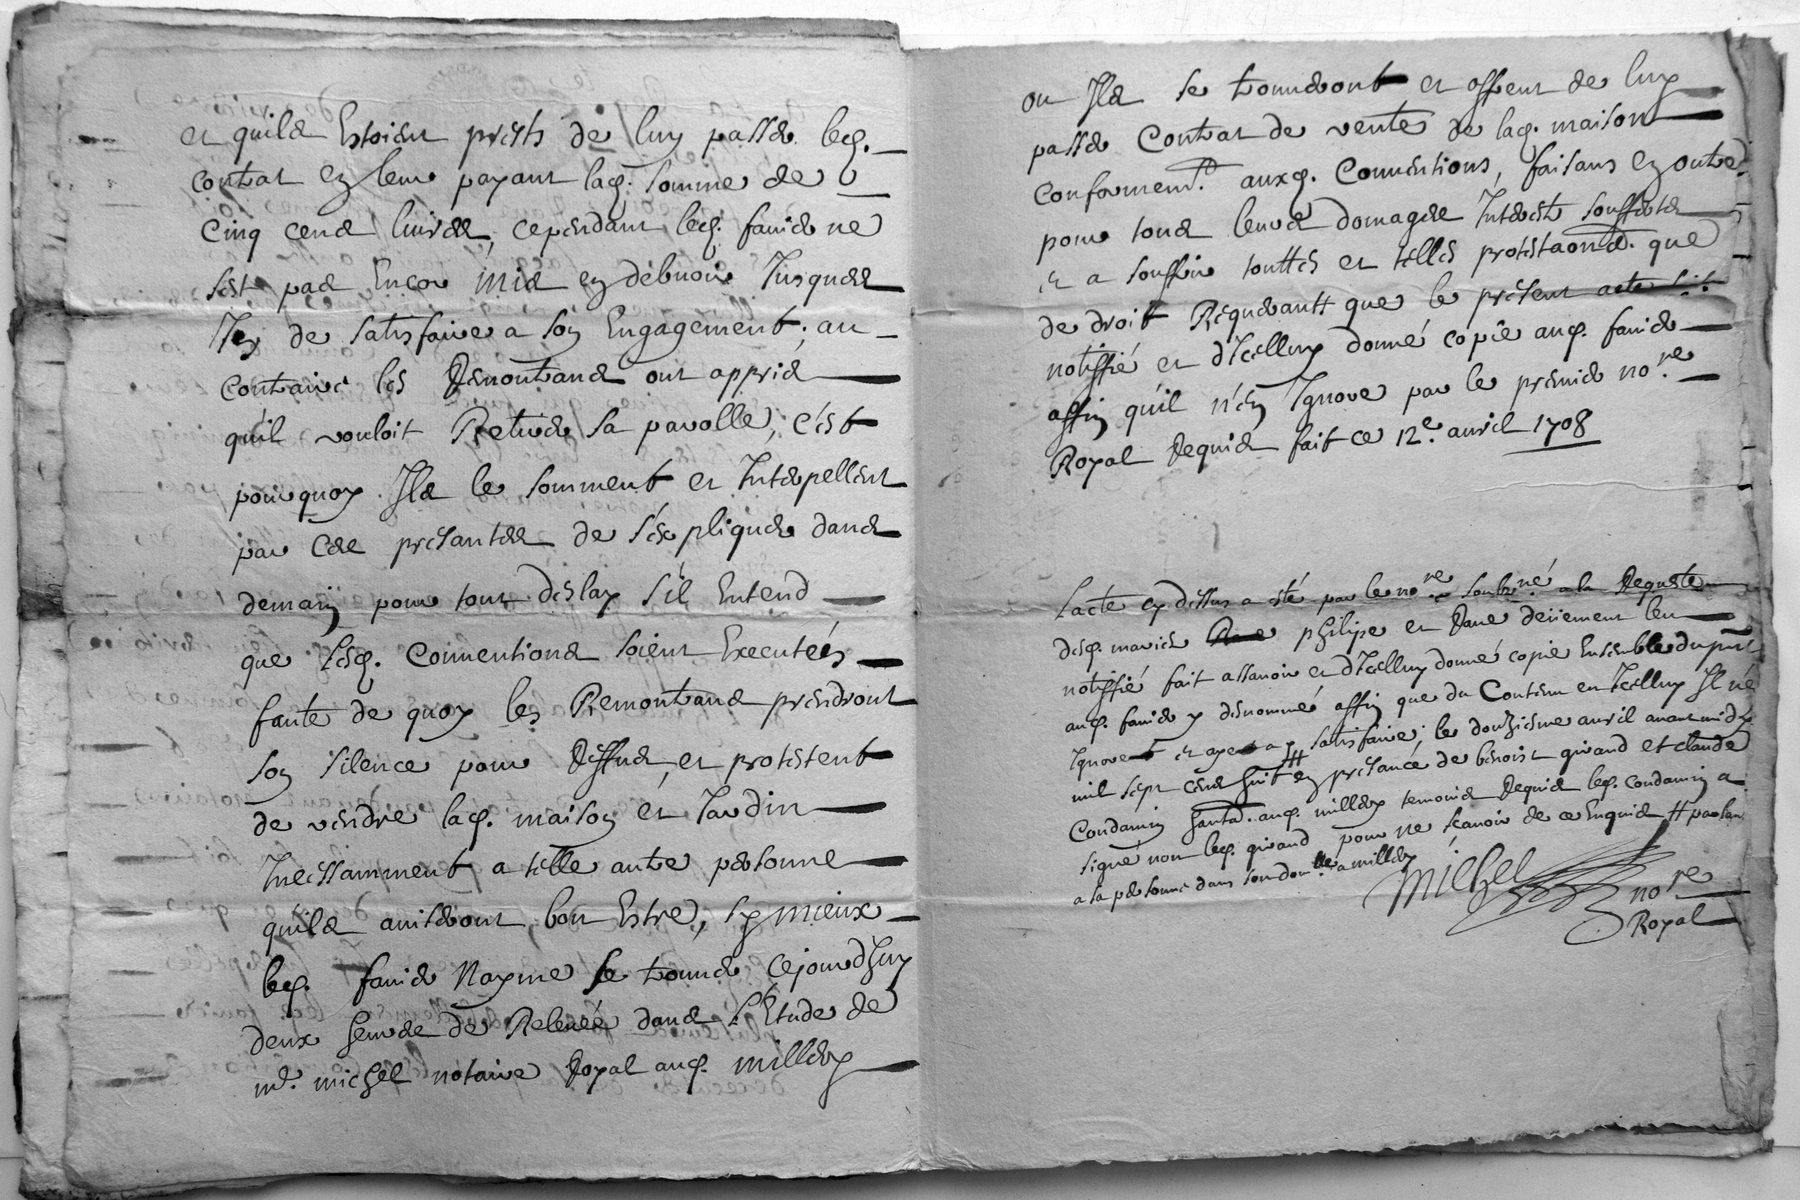 et quils Estoient prests de luy passer led.
contrat en leur payant lad. somme de
Cinq cens livres, cependant led. favier ne
s'est pas Encor mis en debvoir Jusques
Icy de satisfaire a son Engagement, au
contraire les Remontrans ont appris
qu'il vouloit Retirer sa parolle, c'est
pourquoy Ils le somment et Interpellent
par Ces presantes de s'expliquer dans
demain pour tout deslay s'il Entend
que lesd. Conventions soient Executées
faute de quoy les Remontrans prendront
son silence pour Reffus, et protestent
de vendre lad. maison et Jardin
Incessamment a telle autre personne
quils aviseront bon Estre, sy mieux
led. favier N'ayme se trouver cejourd'huy
deux heures de Relevée dans l'Etude de
me. michel notaire Royal aud. millery
ou Ils se trouveront et offrent de luy
passer Contrat de vente de lad. maison
Conformemt. auxd. Conventions, faisans en outre
pour tous leurs domages Interests soufferts
et a souffrir touttes et telles protestaons. que
de droit Requerantt que le present acte soit
notiffié et d'Icelluy donné copie aud. favier
affin qu'il n'en Ignore par le premier nore.
Royal Requis fait ce 12e. avril 1708
Lacte cy dessus a esté par le nore. soubsné. a la Requeste
desd. mariés philipe et Jane deuement leu
notiffié fait assavoir et d'Icelluy donné copie Ensemble du pnt
aud. favier y denommé affin que du Contenu en Icelluy Il né
Ignore et aye a y satisfaire, le douziesme avril avant midy
mil sept cens huit # en presance de benoist givaud et claude
Condamin hantds. aud. millery temoins Requis led. Condamin a
signé non led. givaud pour ne scavoir de ce Enquis # parlant
a sa personne dans son domlle a millery
michel nore
Royal